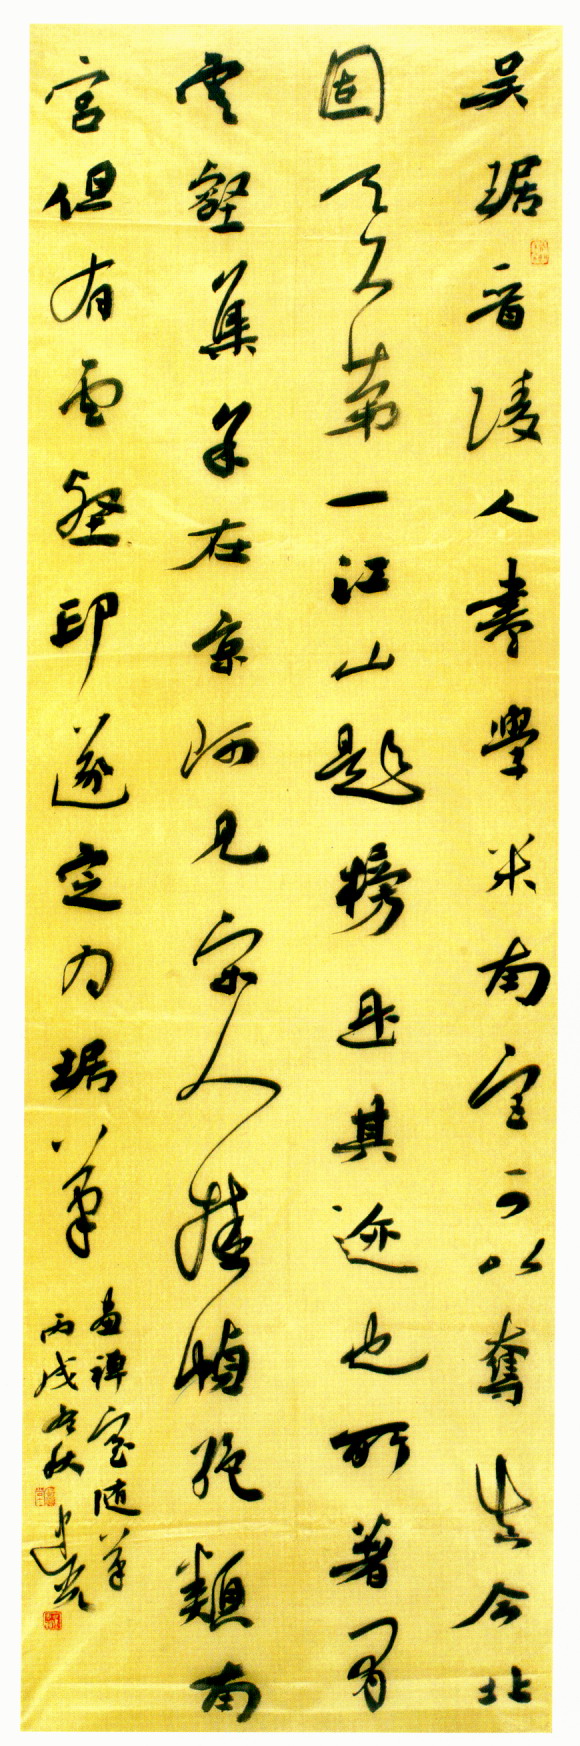 吴琚晋陵人书学米南宫可以夺真今北
固天下第一江山题榜是其迹也所著有
云壑集余在京师见宋人挂帧绝类南
宫但有云壑印遂定为琚笔
画禅室随笔
丙戌秋